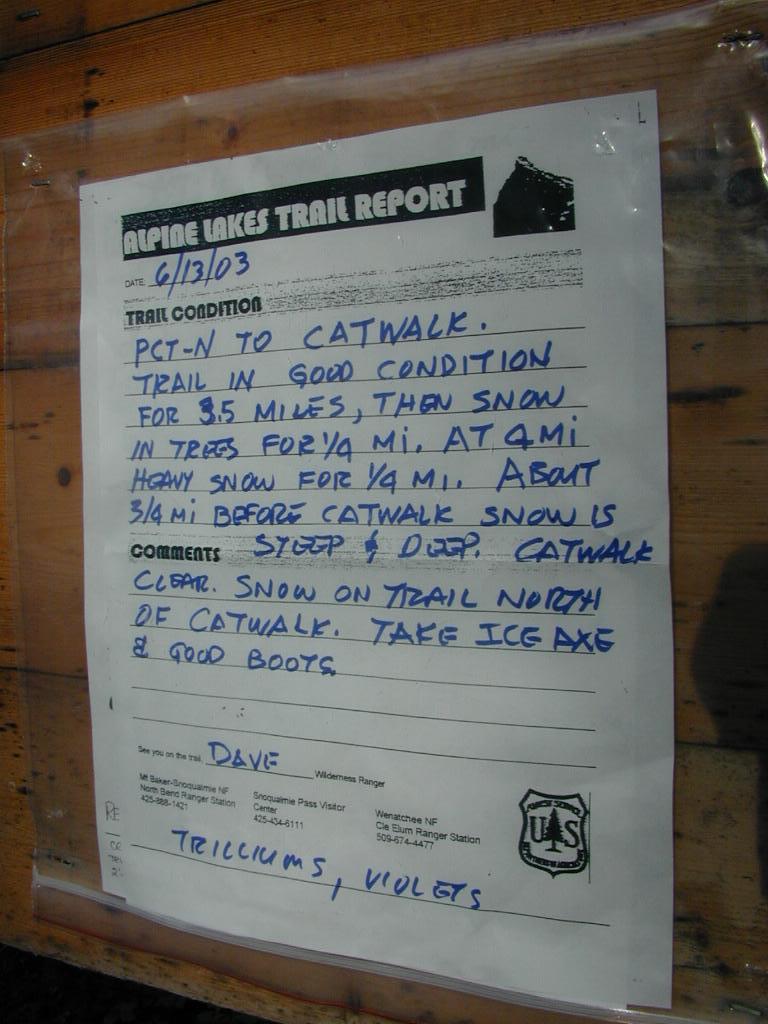 ALPINE LAKES TRAIL REPORT
DATE: 6/13/03
TRAIL CONDITION
PCT-N TO CATWALK.
TRAIL IN GOOD CONDITION
FOR 3.5 MILES, THEN SNOW
IN TREES FOR 1/4 Mi. AT 4Mi
HEAVY SNOW FOR 1/4 Mi. ABOUT
3/4 Mi BEFORE CATWALK SNOW IS
COMMENTS STEEP & DEEP. CATWALK
CLEAR. SNOW ON TRAIL NORTH
OF CATWALK. TAKE ICE AXE
& GOOD BOOTS.
See you on the trail, DAVE Wilderness Ranger
Mt Baker-Snoqualmie NF
North Bend Ranger Station
425-888-1421
Snoqualmie Pass Visitor
Center
425-434-6111
Wenatchee NF
Cle Elum Ranger Station
509-674-4477
FOREST SERVICE
US
DEPARTMENT OF AGRICULTURE
TRILLIUMS, VIOLETS